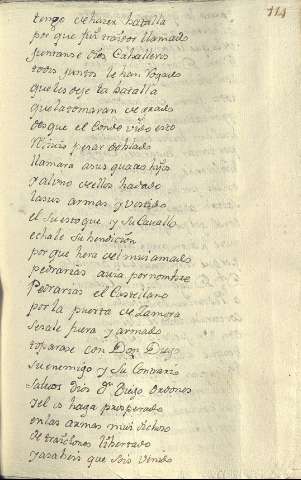 114
tengo de hazer batalla
por que fui traidor llamado
juntanse dos Caballeros
todos juntos le han rogado
que les deje la batalla
que la tomaran de grado
des que el Conde vido esto
pesar doblado
llamara a sus quatro hijos
y al uno de ellos ha dado
las sus armas y vestido
el su estoque y su Cavallo
echale su bendicion
por que hera del mui amado
pedrarias avia por nombre
Pedrarias el Castellano
por la puerta de Zamora
se sale fuera y armado
toparase con Don Diego
su enemigo y su Contrario
salveos Dios Dn Diego Ordoñes
y el os haga prosperado
en las armas mui dichoso
de traiciones libertado
ya sabeis que sois venido